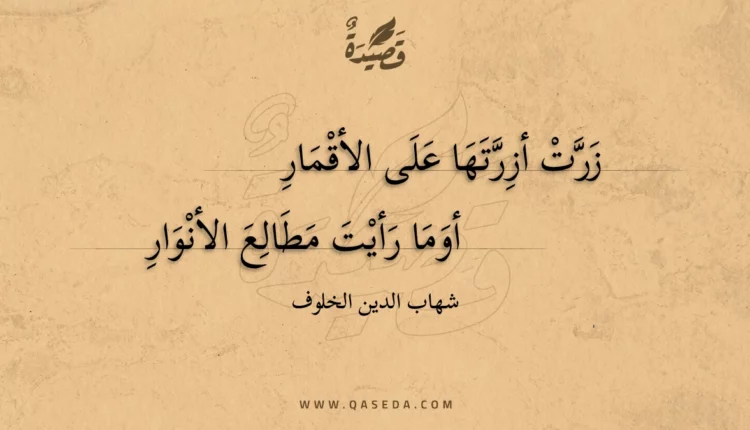 قَصِيْدَةٌ
زَرَّتْ أزِرَّتَهَا عَلَى الأقْمَارِ
أوَمَا رَأيْتَ مَطَالِعَ الأنْوَارِ
شهاب الدين الخلوف
WWW.QASEDA.COM